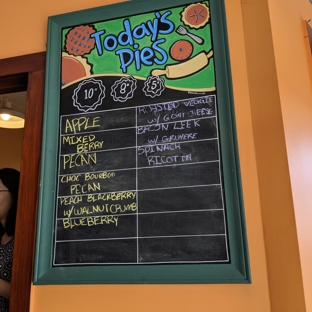 Today's
Pies
10"
9"
5"
APPLE
MIXED
BERRY
PECAN
CHOC BOURBON
PECAN
PEACH BLACKBERRY
W/WALNUT CRUMB
BLUEBERRY
ROASTED VEGGIE
W/ GOAT CHEESE
BACON LEEK
W/ GRUYERE
SPINACH
RICOTTA